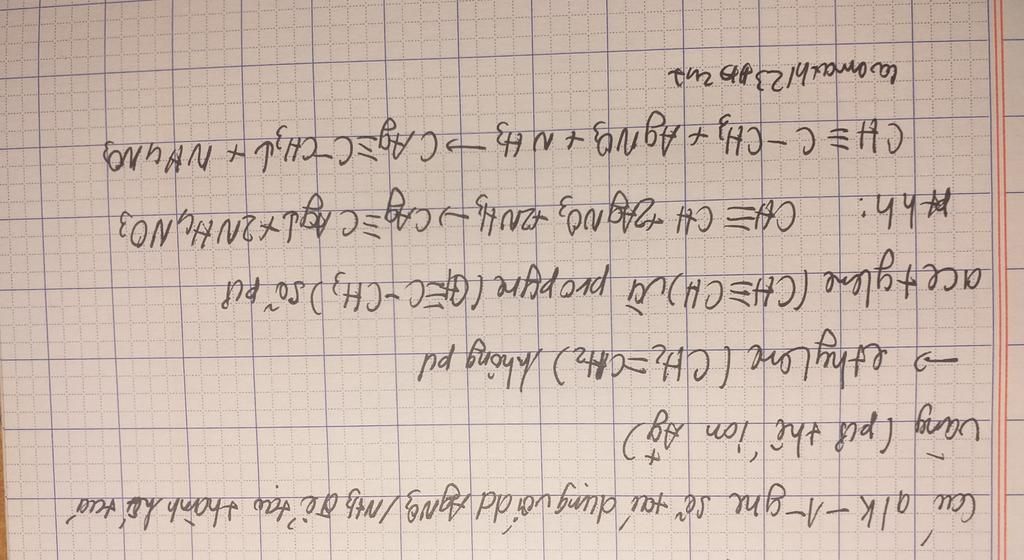 Các alk-1-yne sẽ tác dụng với dd AgNO3/NH3 để tạo thành kết tủa
vàng (pứ thế ion Ag+)
→ ethylene (CH2=CH2) không pứ
acetylene (CH≡CH) và propyne (CH≡C-CH3) sẽ pứ
Pthh: CH≡CH + 2AgNO3 + 2NH3 → CAg≡CAg↓ + 2NH4NO3
CH≡C-CH3 + AgNO3 + NH3 → CAg≡C-CH3↓ + NH4NO3